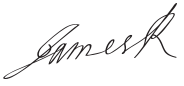 James R